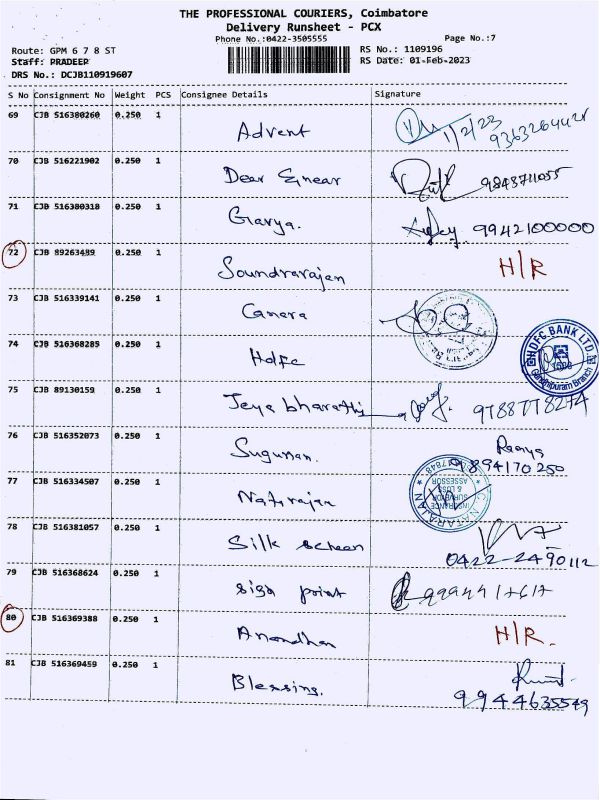 THE PROFESSIONAL COURIERS, Coimbatore
Delivery Runsheet - PCX
Phone No.:0422-3505555 Page No.:7
Route: GPM 6 7 8 ST RS No.: 1109196
Staff: PRADEEP RS Date: 01-Feb-2023
DRS No.: DCJB110919607
S No Consignment No Weight PCS Consignee Details Signature
69 CJB 516380260 0.250 1 Advent 1/2/23
70 CJB 516221902 0.250 1 Dear Enear 9843711055
71 CJB 516380318 0.250 1 Gavya. 9942100000
72 CJB 89263439 0.250 1 Soundrarajan H/R
73 CJB 516339141 0.250 1 Canara
74 CJB 516368285 0.250 1 Hdfc HDFC BANK LTD Gandhipuram Branch
75 CJB 89130159 0.250 1 Jeya bharathi 9788778274
76 CJB 516352073 0.250 1 Sugunan. Ramya 9894170250
77 CJB 516334507 0.250 1 Natarajan NATARAJAN INSURANCE SURVEYOR & LOSS ASSESSOR
78 CJB 516381057 0.250 1 Silk screen 0422-2490112
79 CJB 516368624 0.250 1 sign point
80 CJB 516369388 0.250 1 Anandhan H/R.
81 CJB 516369459 0.250 1 Blessing. 9944635549